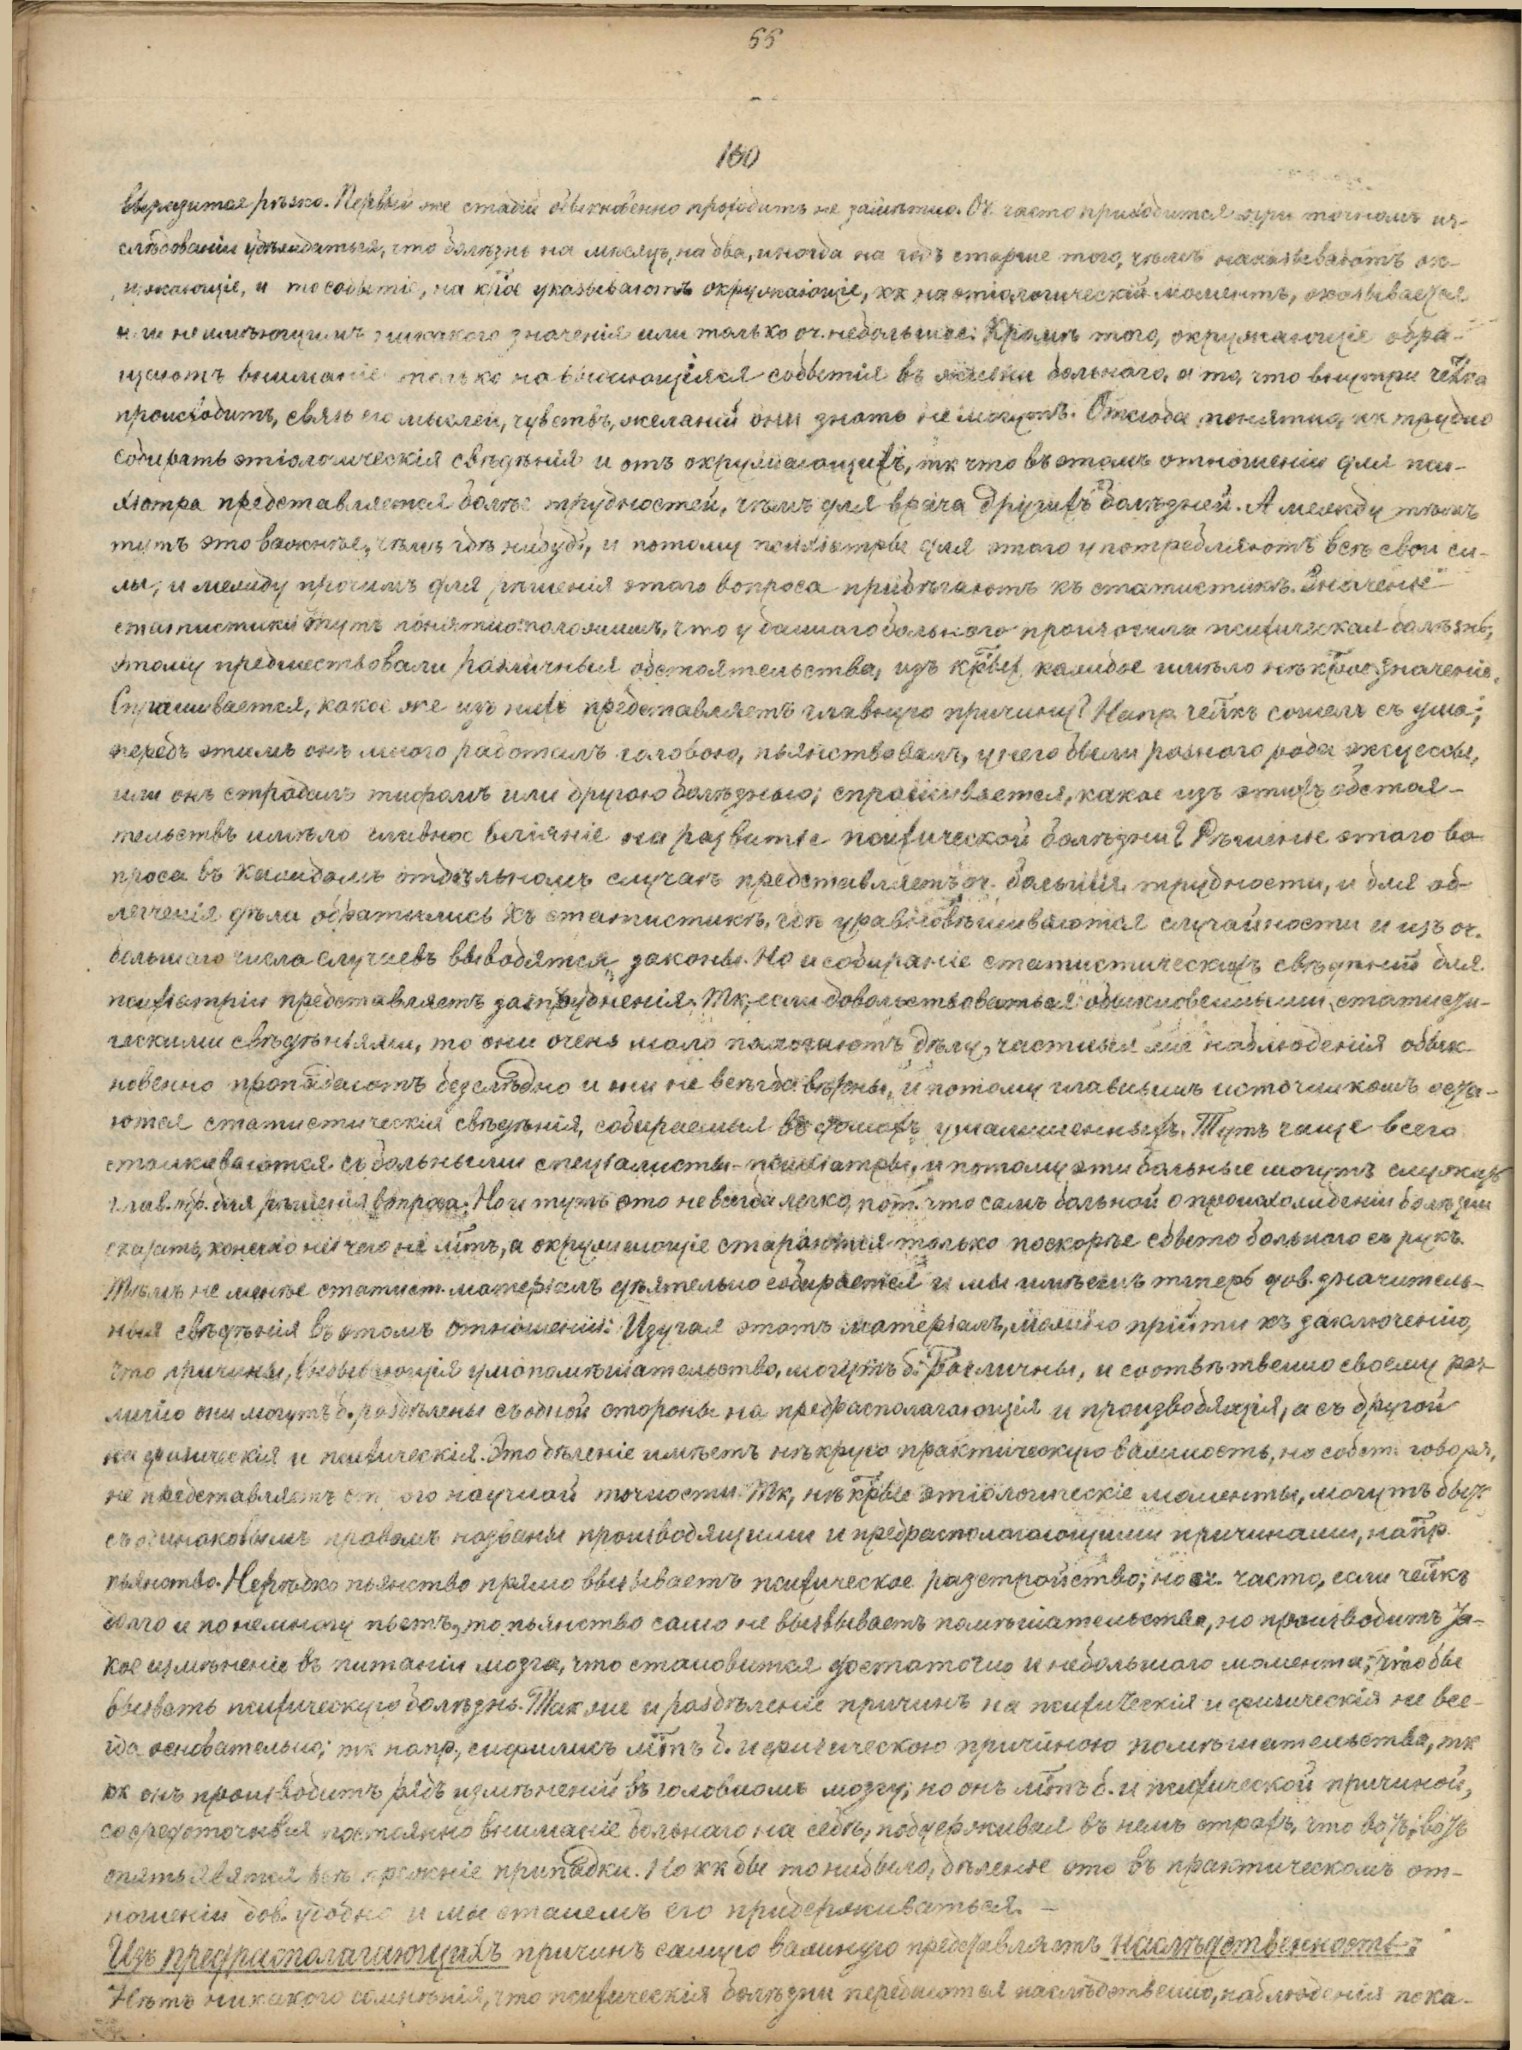 55
160
выразится рѣзко. Первый же стадій обыкновенно проходитъ не замѣтно. Оч. часто приходится при точномъ из-
слѣдованіи убѣдиться, что болѣзнь на мѣсяцъ, на два, иногда на годъ старше того, чѣмъ показываютъ ок-
ружающіе, и то событіе, на к̅ое указываютъ окружающіе, кк на этіологическій моментъ, оказывается
или не имѣющимъ никакого значенія или только оч. небольшое. Кромѣ того, окружающіе обра-
щаютъ вниманіе только на выдающіяся событія въ жизни больного, а то, что внутри чел̅ка
происходитъ, связь его мыслей, чувствъ, желаній они знать не могутъ. Отсюда понятно, кк трудно
собирать этіологическія свѣдѣнія и отъ окружающихъ, тк что въ этомъ отношеніи для пси-
хіатра представляется болѣе трудностей, чѣмъ для врача другихъ болѣзней. А между тѣмъ
тутъ это важнѣе, чѣмъ гдѣ нибудь, и потому психіатры для этого употребляютъ всѣ свои си-
лы, и между прочимъ для рѣшенія этого вопроса прибѣгаютъ къ статистикѣ. Значеніе
статистики тутъ понятно: положимъ, что у даннаго больного произошла психическая болѣзнь,
этому предшествовали различныя обстоятельства, изъ к̅рыхъ каждое имѣло нѣк̅рое значеніе.
Спрашивается, какое же изъ нихъ представляетъ главную причину? Напр. чел̅къ сошелъ съ ума;
передъ этимъ онъ много работалъ головою, пьянствовалъ, у него были разнаго рода эксцессы,
или онъ страдалъ тифомъ или другою болѣзнью; спрашивается, какое изъ этихъ обстоя-
тельствъ имѣло главное вліяніе на развитіе психической болѣзни? Рѣшеніе этого во-
проса въ каждомъ отдѣльномъ случаѣ представляетъ оч. большія трудности, и для об-
легченія дѣла обратились къ статистикѣ, гдѣ уравновѣшиваются случайности и изъ оч.
большаго числа случаевъ выводятся законы. Но и собираніе статистическихъ свѣдѣній для
психіатріи представляетъ затрудненія. Тк, если довольствоваться обыкновенными статисти-
ческими свѣдѣніями, то они очень мало помогаютъ дѣлу, частныя же наблюденія обык-
новенно пропадаютъ безслѣдно и они не всегда вѣрны, и потому главнымъ источникомъ оста-
ются статистическія свѣдѣнія, собираемыя въ домахъ умалишенныхъ. Тутъ чаще всего
сталкиваются съ больными спеціалисты-психіатры, и потому эти больные могутъ служить
глав. обр. для рѣшенія вопроса. Но и тутъ это не всегда легко, пот. что самъ больной о происхожденіи болѣзни
сказать, конечно ничего не м̅тъ, а окружающіе стараются только поскорѣе сбыть больного съ рукъ.
Тѣмъ не менѣе статист. матеріалъ дѣятельно собирается и мы имѣемъ теперь дов. значитель-
ныя свѣдѣнія въ этомъ отношеніи. Изучая этотъ матеріалъ, можно прійти къ заключенію,
что причины, вызывающія умопомѣшательство, могутъ б. различны, и соотвѣтственно своему раз-
личію они могутъ б. раздѣлены съ одной стороны на предрасполагающія и производящія, а съ другой
на физическія и психическія. Это дѣленіе имѣетъ нѣк̅рую практическую важность, но собств. говоря,
не представляетъ строго научной точности. Тк, нѣк̅рые этіологическіе моменты, могутъ быть
съ одинаковымъ правомъ названы производящими и предрасполагающими причинами, напр.
пьянство. Нерѣдко пьянство прямо вызываетъ психическое разстройство; но оч. часто, если чел̅къ
долго и понемногу пьетъ, то пьянство само не вызываетъ помѣшательства, но производитъ та-
кое измѣненіе въ питаніи мозга, что становится достаточно и небольшаго момента, чтобы
вызвать психическую болѣзнь. Такъ же и раздѣленіе причинъ на психическія и физическія не все-
гда основательно; тк напр., сифилисъ м̅тъ б. и физическою причиною помѣшательства, тк
кк онъ производитъ рядъ измѣненій въ головномъ мозгу; но онъ м̅тъ б. и психической причиной,
сосредоточивая постоянно вниманіе больнаго на себѣ, поддерживая въ немъ страхъ, что вотъ, вотъ
опять явятся всѣ прежніе припадки. Но кк бы то ни было, дѣленіе это въ практическомъ от-
ношеніи дов. удобно и мы станемъ его придерживаться. –
Изъ предрасполагающихъ причинъ самую важную представляетъ наслѣдственность:
Нѣтъ никакого сомнѣнія, что психическія болѣзни передаются наслѣдственно, наблюденія пока-